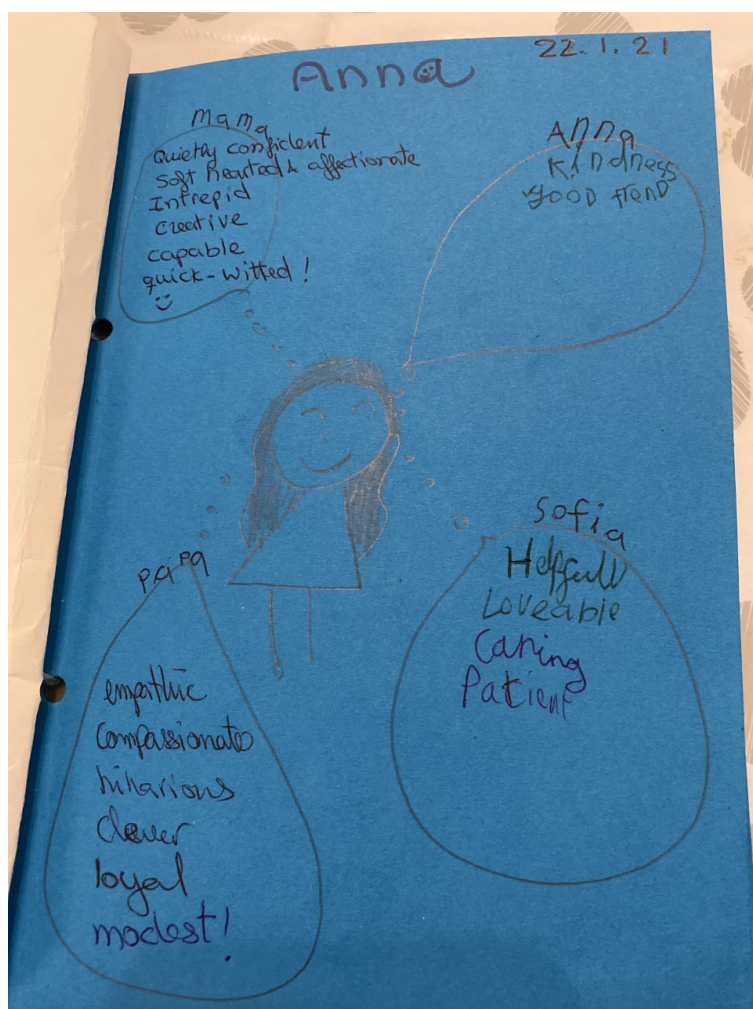 Anna
22.1.21
Mama
Quietly confident
soft hearted & affectionate
Intrepid
creative
capable
quick-witted!
Anna
Kindness
good frend
Papa
empathic
compassionate
hilarious
clever
loyal
modest!
Sofia
Helpfull
Loveable
Caring
Patient